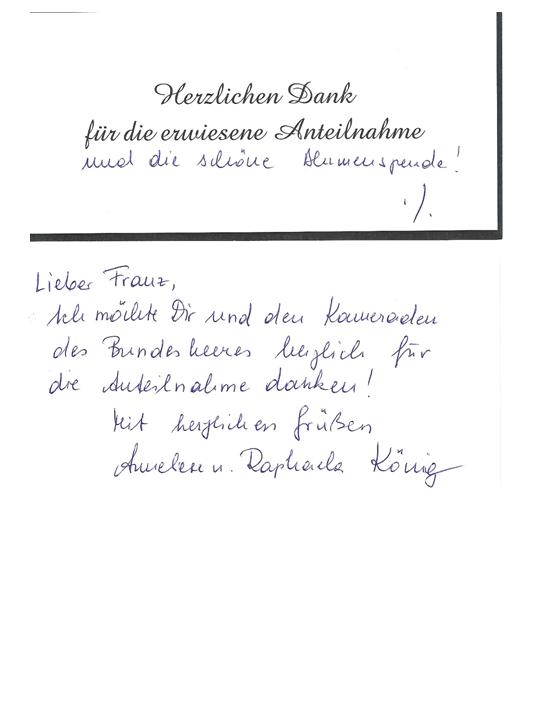 Herzlichen Dank
für die erwiesene Anteilnahme
und die schöne Blumenspende!
./.
Lieber Franz,
Ich möchte Dir und den Kameraden
des Bundesheeres herzlich für
die Anteilnahme danken!
Mit herzlichen Grüßen
u. Raphaela König